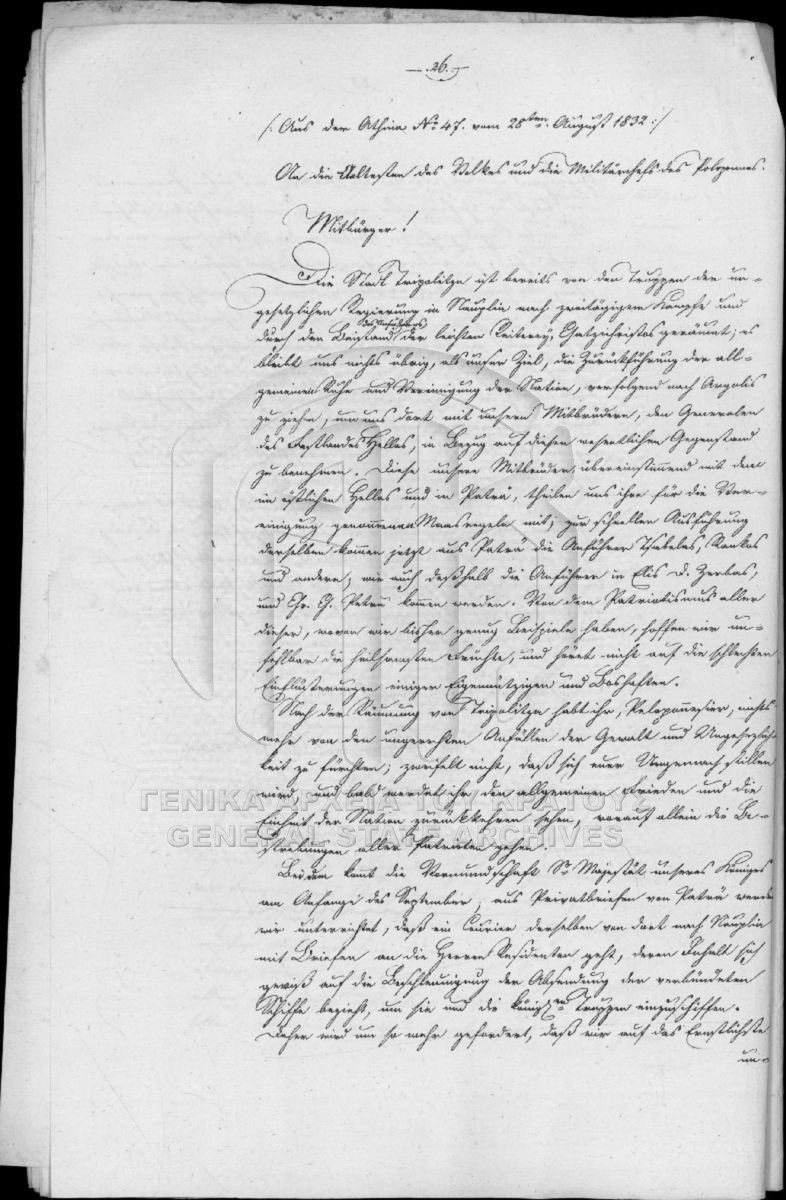 26.
/: Aus der Athina No 47. vom 28ten August 1832 :/
An die Aeltesten des Volkes und die Militärchefs des Peloponnes.
Mitbürger!
Die Stadt Tripolitza ist bereits von den Truppen der un-
gesetzlichen Regierung in Nauplia nach zweitägigem Kampfe und
des Anführers
durch den Beistand der leichten Reiterey, Chatzichristos geräumt; es
bleibt uns nichts übrig, als unser Ziel, die Zurückführung der all-
gemeinen Ruhe und Vereinigung der Nation, verfolgend nach Argolis
zu ziehen, um uns dort mit unsern Mitbrüdern, den Generalen
des Festlandes Hellas, in Bezug auf diesen wesentlichen Gegenstand
zu benehmen. Diese unsere Mitbrüder, übereinstimmend mit denen
im östlichen Hellas und in Paträ, theilen uns ihre für die Ver-
einigung genommenen Maasregeln mit; zur schnellen Ausführung
derselben kommen jetzt aus Paträ die Anführer Tzabelas,
und andere, wie auch deßhalb die Anführer in Elis D. Zerbas,
und Chr. Petru kommen werden. Von dem Patriotismus aller
dieser, wovon wir bisher genug Beispiele haben, hoffen wir un-
fehlbar die heilsamsten Früchte, und höret nicht auf die schlechten
Einflüsterungen einiger Eigennützigen und Boshaften.
Nach der Räumung von Tripolitza habt ihr, Peloponnesier, nichts
mehr von den ungerechten Anfällen der Gewalt und Ungesetzlich-
keit zu fürchten; zweifelt nicht, daß sich euer Ungemach stillen
wird, und bald werdet ihr den allgemeinen Frieden und die
Einheit der Nation zurückkehren sehen, worauf allein die Be-
strebungen aller Patrioten gehen.
ΓΕΝΙΚΑ ΑΡΧΕΙΑ ΤΟΥ ΚΡΑΤΟΥΣ
GENERAL STATE ARCHIVES
kommt die Vormundschaft Sr Majestät unseres Königes
am Anfange des September; aus Privatbriefen von Paträ werden
wir unterrichtet, daß ein Courier derselben von dort nach Nauplia
mit Briefen an die Herren Residenten geht, deren Inhalt sich
gewiß auf die Beschleunigung der Absendung der verbündeten
Schiffe bezieht, um sie und die königl. Truppen einzuschiffen.
Daher wird um so mehr gefordert, daß wir auf das Ernstlichste
un-